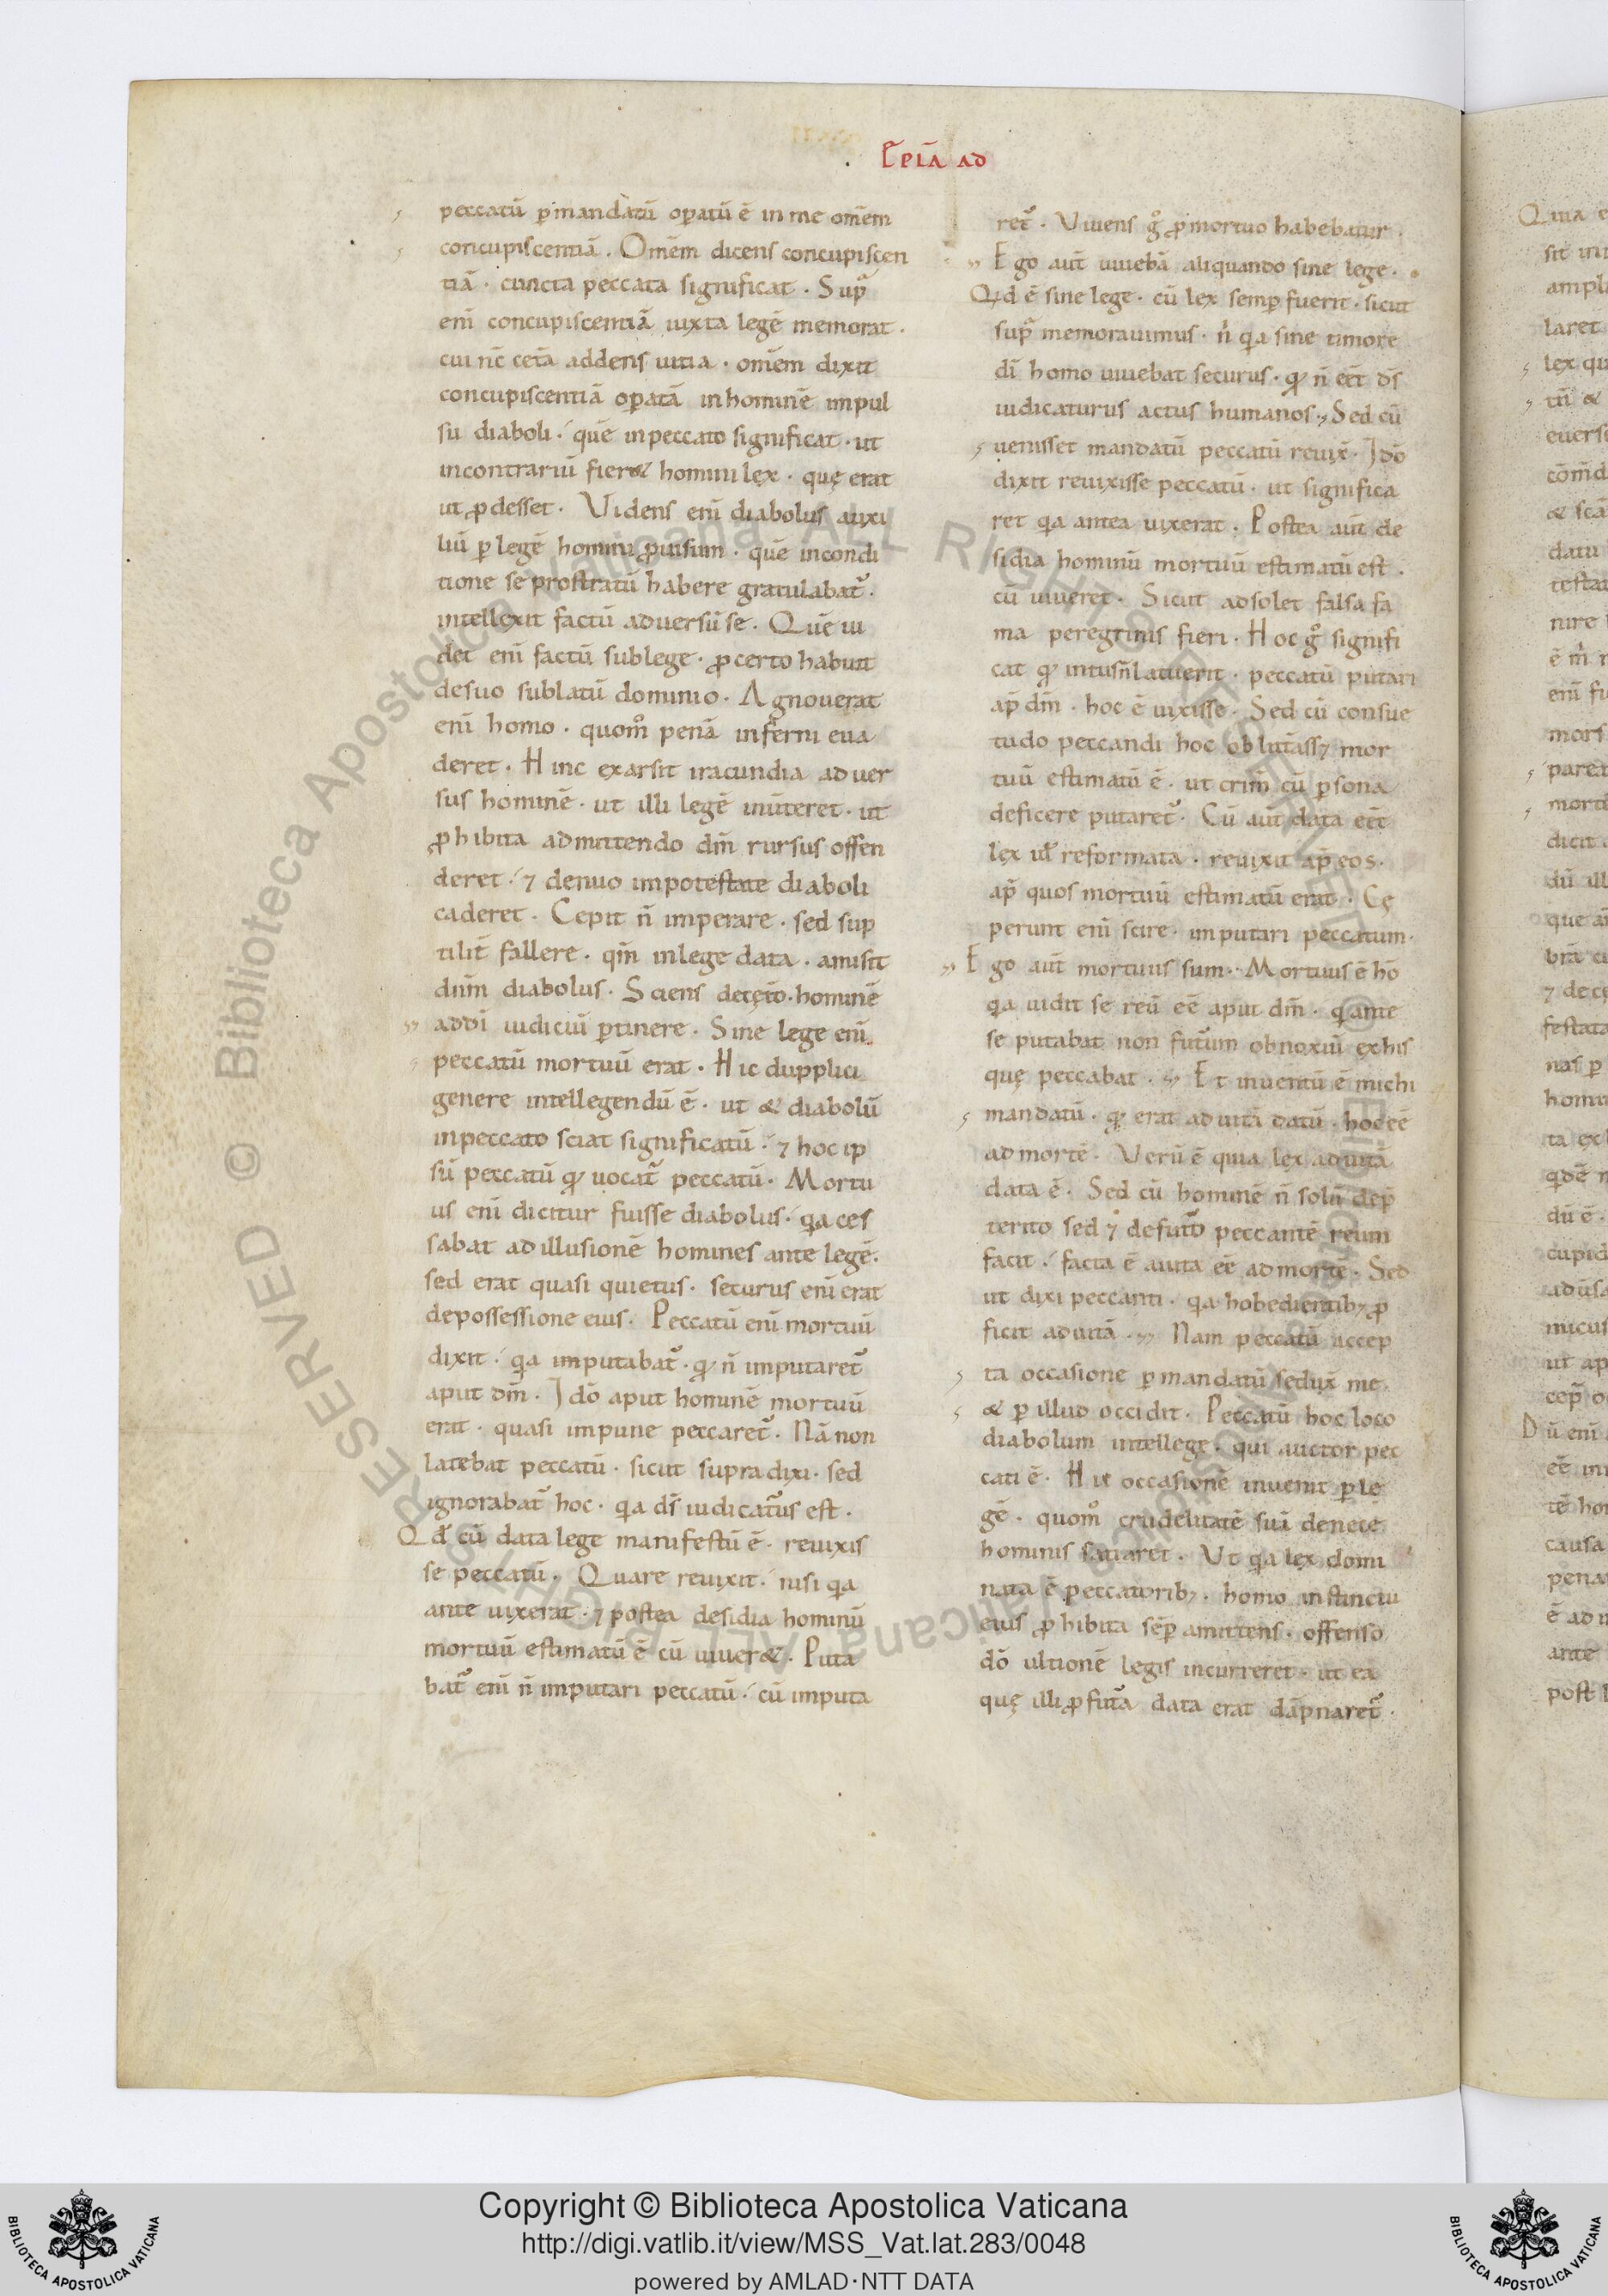 p̄ eplā ad
peccatū ꝑ mandatū opatū ē in me om̄em
concupiscentiā. Om̄em dicens concupiscen
tiā· cuncta peccata significat· Sup̄
eni concupiscentiā iuxta legē memorat.
cui nc̄ cetā addens uitia· om̄em dixit
concupiscentiā opatā in hominē impul
su diaboli· quē in peccato significat· ut
in contrariū fier& homini lex· quę erat
ut ꝓdesset. Videns eni diabolus auxi
liū ꝑ legē homini ꝓuisum· quē in condi
tione se prostratū habere gratulabat᷑.
intellexit factū aduersū se. Quē ui
det eni factū sub lege· ꝓ certo habuit
de suo sublatū dominio. Agnouerat
eni homo· quom̊ penā inferni eua
deret. Hinc exarsit iracundia aduer
sus hominē· ut illi legē inūteret· ut
ꝓhibita admittendo dm̄ rursus offen
deret· ⁊ denuo in potestate diaboli
caderet. Cepit n̄ imperare· sed sup
tilit̄ fallere· qm̄ in lege data· amisit
dnm̄ diabolus. Sciens decęt̄o· hominē
ad dī iudiciū ꝑtinere. Sine lege eni
peccatū mortuū erat. Hic dupplici
genere intellegendū ē· ut & diabolū
in peccato sciat significatū· ⁊ hoc ip
sū peccatū qđ uocat᷑ peccatū. Mortu
us eni dicitur fuisse diabolus· qa ces
sabat ad illusionē homines ante legē.
sed erat quasi quietus· securus eni erat
de possessione eius. Peccatū eni mortuū
dixit· qa imputabat᷑· qđ n̄ imputaret᷑
aput dm̄. Idō aput hominē mortuū
erat· quasi impune peccaret᷑. Nā non
latebat peccatū· sicut supra dixi· sed
ignorabat᷑ hoc· qa ds̄ iudicat᷑us est.
Qđ cū data lege manifestū ē· reuixis
se peccatū. Quare reuixit· nisi qa
ante uixerat· ⁊ postea desidia hominū
mortuū estimatū ē cū uiuer&. Puta
bat᷑ eni n̄ imputari peccatū· cū imputa
ret᷑. Viuens g̊ ꝓ mortuo habebatur.
Ego aut̄ uiuebā aliquando sine lege.
Qđ ē sine lege· cū lex semꝑ fuerit· sicut
sup̄ memorauimus· n̄ qa sine timore
dī homo uiuebat securus· qđ n̄ eēt ds̄
iudicaturus actus humanos. Sed cū
uenisset mandatū peccatū reuix̄. Idō
dixit reuixisse peccatū· ut significa
ret qa antea uixerat. Postea aut̄ de
sidia hominū mortuū estimatū est.
cū uiueret. Sicut adsolet falsa fa
ma peregrinis fieri. Hoc g̊ signifi
cat qđ intus n̄ latuerit· peccatū putari
ap̄ dm̄· hoc ē uixisse. Sed cū consue
tudo peccandi hoc oblitass; mor
tuū estimatū ē· ut crim̄ cū ꝑsona
deficere putaret᷑. Cū aut̄ data eēt
lex ut̄ reformata· reuixit ap̄ eos·
ap̄ quos mortuū estimatū erat. Cę
perunt eni scire· imputari peccatum.
Ego aut̄ mortuus sum. Mortuus ē hō
qa uidit se reū eē aput dm̄· q ante
se putabat non fut᷑um obnoxiū ex his
quę peccabat. Et inuentū ē michi
mandatū· qđ erat ad uitā datū· hoc eē
ad mortē. Verū ē quia lex ad uitā
data ē. Sed cū hominē n̄ solū dep̄
terito sed ⁊ de fut᷑o peccantē reum
facit· facta ē a uita eē ad mortē. Sed
ut dixi peccanti· qa hobedientib; ꝓ
ficit ad uitā. Nam peccatū accep
ta occasione ꝑ mandatū sedux̄ me.
& ꝑ illud occidit. Peccatū hoc loco
diabolum intellege· qui auctor pec
cati ē. Hic occasionē inuenit ꝑ le
gē· quom̊ crudelitatē suā de nece
hominis satiaret. Ut qa lex domi
nata ē peccatorib;· homo instinctu
eius ꝓhibita semꝑ amittens· offenso
dō ultionē legis incurreret· ut ea
quę illi ꝓfut᷑a data erat dāpnaret᷑.
Copyright © Biblioteca Apostolica Vaticana
http://digi.vatlib.it/view/MSS_Vat.lat.283/0048
powered by AMLAD·NTT DATA